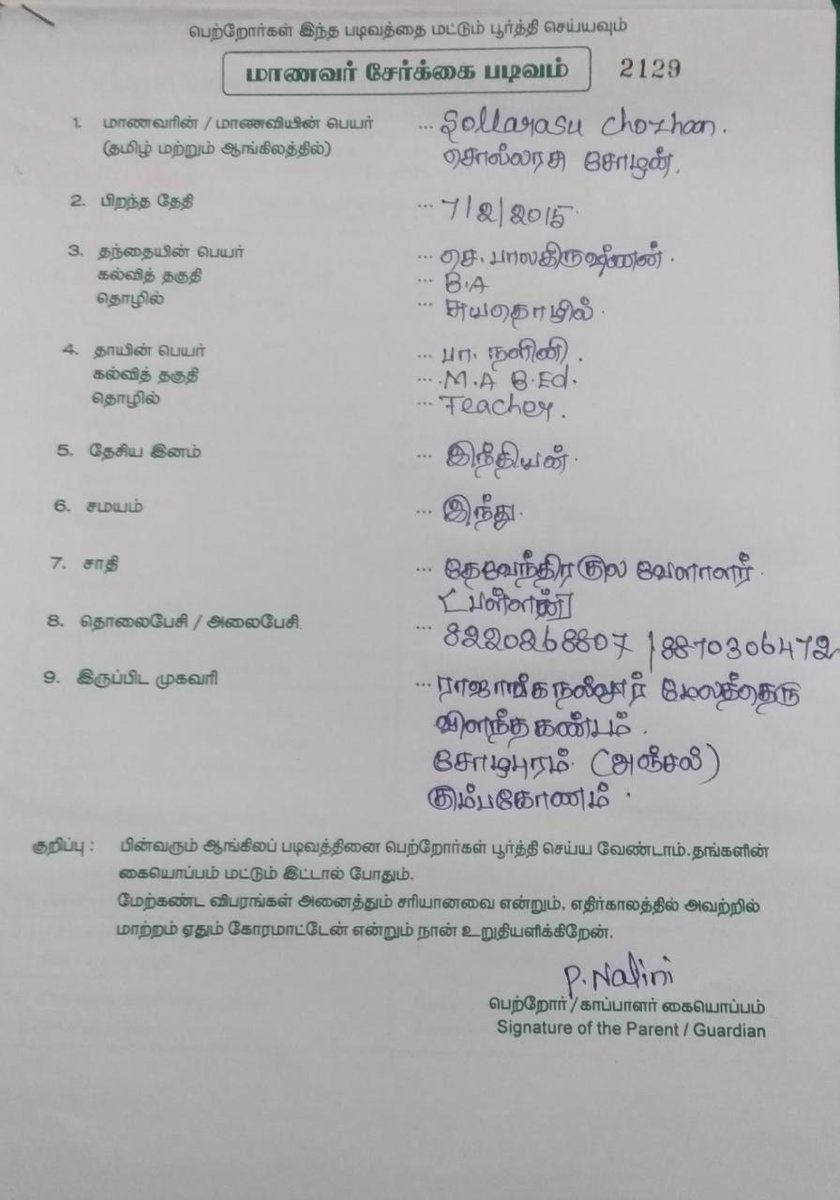 பெற்றோர்கள் இந்த படிவத்தை மட்டும் பூர்த்தி செய்யவும்
மாணவர் சேர்க்கை படிவம் 2129
1. மாணவரின் / மாணவியின் பெயர் ... Sollarasu Chozhan.
(தமிழ் மற்றும் ஆங்கிலத்தில்) சொல்லரசு சோழன்.
2. பிறந்த தேதி ... 7/2/2015
3. தந்தையின் பெயர் ... செ. பாலகிருஷ்ணன்.
கல்வித் தகுதி ... B.A
தொழில் ... சுயதொழில்.
4. தாயின் பெயர் ... பா. நளினி.
கல்வித் தகுதி ... M.A B.Ed.
தொழில் ... Teacher.
5. தேசிய இனம் ... இந்தியன்.
6. சமயம் ... இந்து.
7. சாதி ... தேவேந்திர குல வேளாளர்.
(பள்ளன்)
8. தொலைபேசி / அலைபேசி ... 8220268807 / 8870306472
9. இருப்பிட முகவரி ... மேலத்தெரு
விளந்தகண்டம்.
சோழபுரம். (அஞ்சல்)
கும்பகோணம்.
குறிப்பு : பின்வரும் ஆங்கிலப் படிவத்தினை பெற்றோர்கள் பூர்த்தி செய்ய வேண்டாம்.தங்களின்
கையொப்பம் மட்டும் இட்டால் போதும்.
மேற்கண்ட விபரங்கள் அனைத்தும் சரியானவை என்றும், எதிர்காலத்தில் அவற்றில்
மாற்றம் ஏதும் கோரமாட்டேன் என்றும் நான் உறுதியளிக்கிறேன்.
P. Nalini
பெற்றோர் / காப்பாளர் கையொப்பம்
Signature of the Parent / Guardian